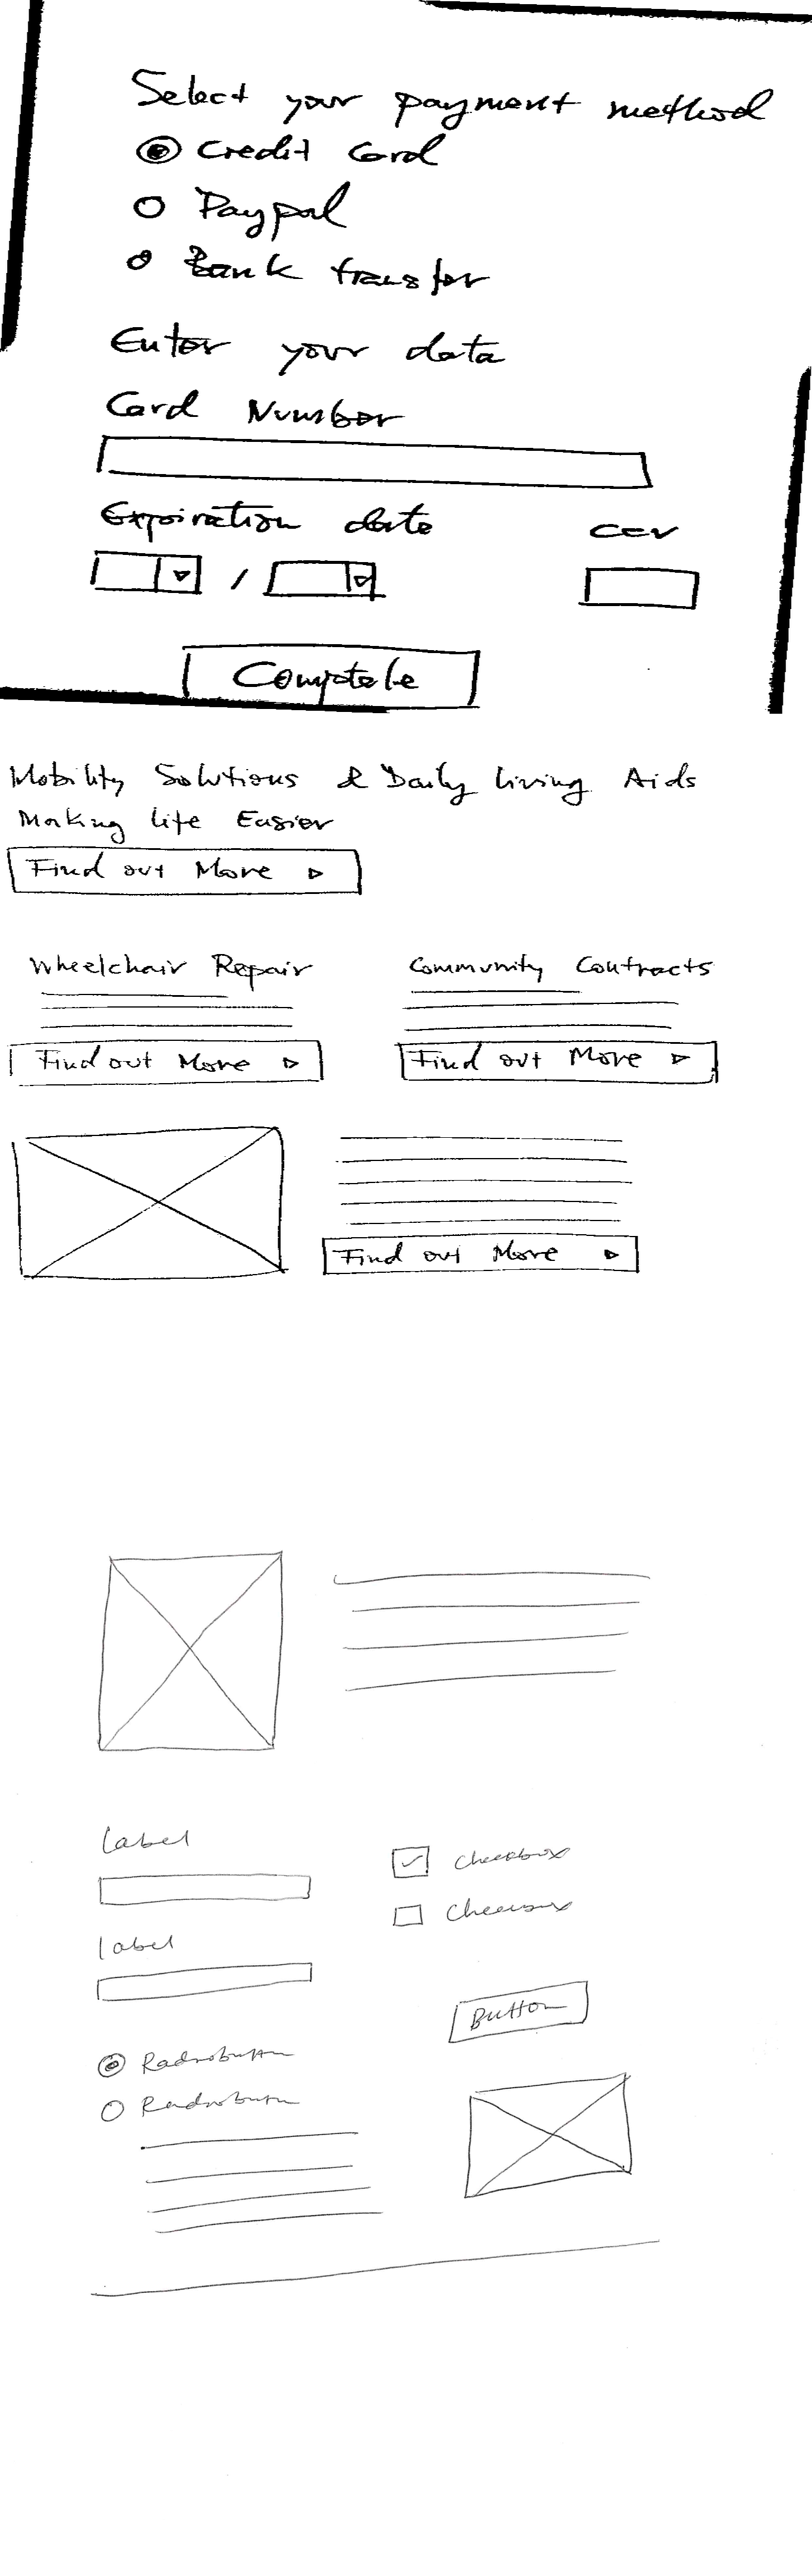 Select your payment method
Credit Card
Paypal
Bank transfer
Enter your data
Card Number
Expiration date
ccv
/
Complete
Mobility Solutions & Daily Living Aids
Making Life Easier
Find out More
Wheelchair Repair
Community Contracts
Find out More
Find out More
Find out More
Label
Checkbox
Checkbox
label
Button
Radiobutton
Radiobutton